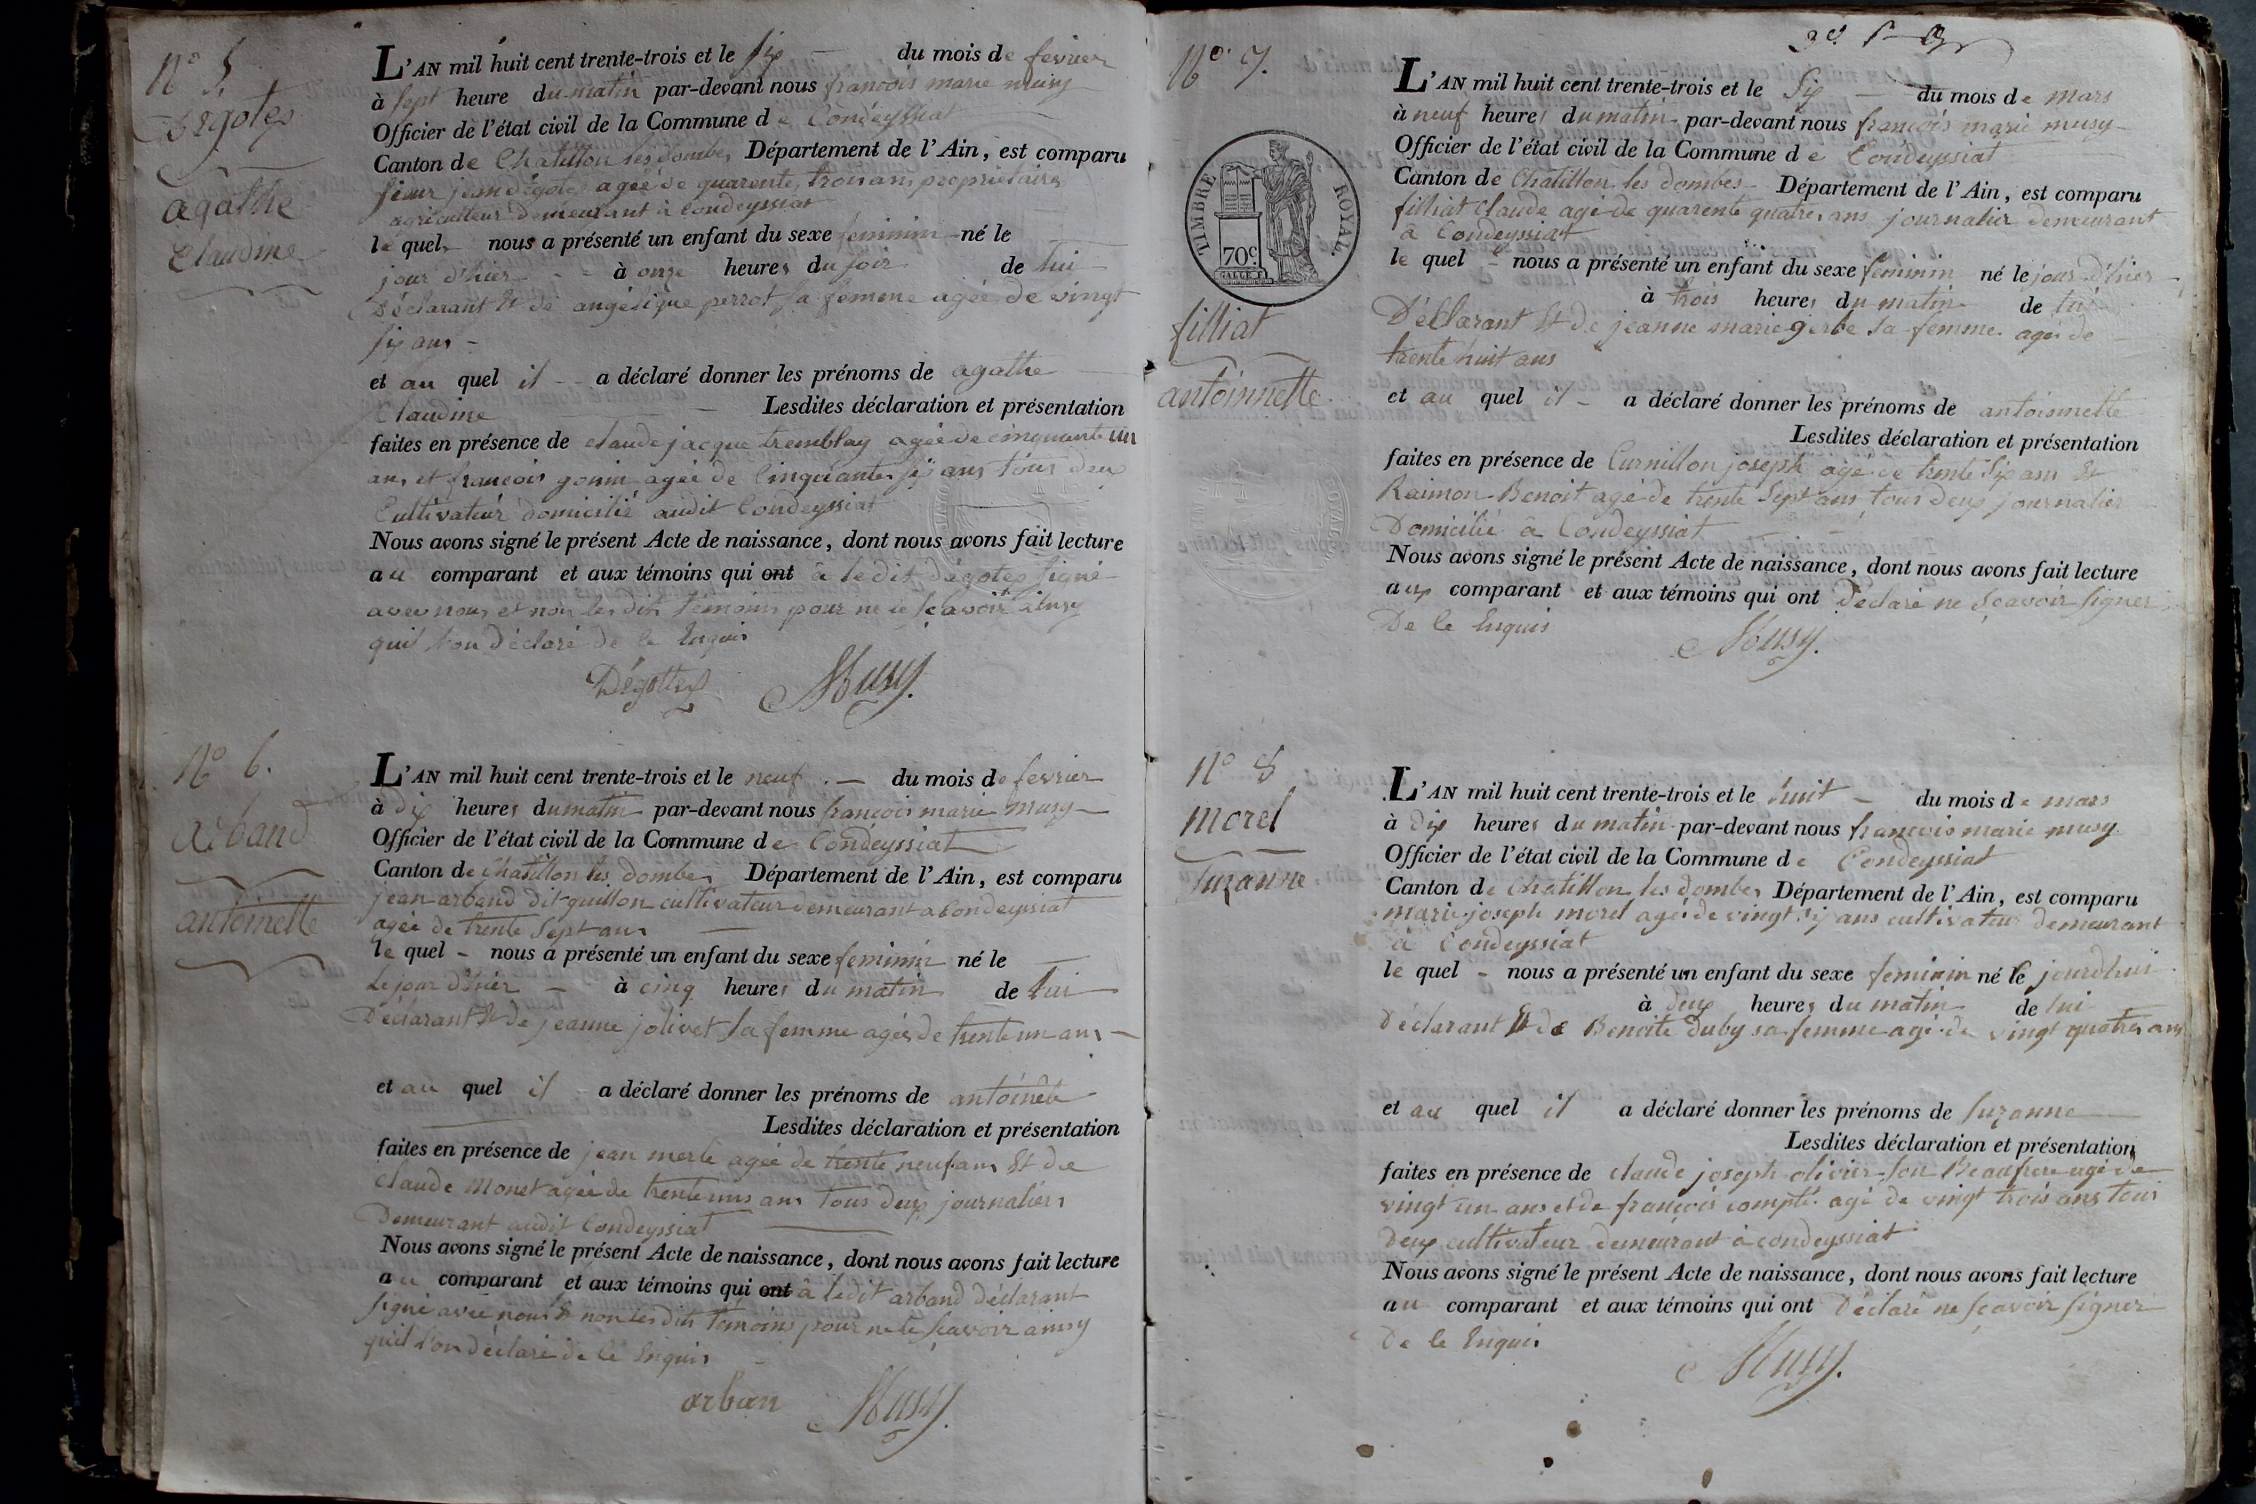 N° 5.
Dégotex
agathe
Claudine
L'AN mil huit cent trente-trois et le six du mois de fevrier
à sept heure du matin par-devant nous francois marie musy
Officier de l'état civil de la Commune de Condeyssiat
Canton de Chatillon les dombes Département de l'Ain, est comparu
sieur jean dégotex agéé de quarente trois ans propriétaire
agriculteur demeurant à Condeyssiat
le quel nous a présenté un enfant du sexe féminin né le
jour d'hier à onze heures du soir de lui
Déclarant et de angélique perrot sa femme agée de vingt
six ans
et au quel il a déclaré donner les prénoms de agathe
Claudine Lesdites déclaration et présentation
faites en présence de claude jacque tremblay agée de cinquante un
ans et francois gonin agée de Cinquante six ans tous deux
Cultivateur domicilié audit Condeyssiat
Nous avons signé le présent Acte de naissance, dont nous avons fait lecture
au comparant et aux témoins qui ont à ledit dégotex signé
avec nous et non les dits témoins pour ne le scavoir ainsy
quil l'on déclaré de le Enquis
Dégottex Musy.
N° 6.
arband
antoinette
L'AN mil huit cent trente-trois et le neuf du mois de fevrier
à dix heures du matin par-devant nous francois marie musy
Officier de l'état civil de la Commune de Condeyssiat
Canton de Chatillon les dombes Département de l'Ain, est comparu
jean arband dit guillon cultivateur demeurant a Condeyssiat
agée de trente sept ans
le quel nous a présenté un enfant du sexe feminin né le
le jour d'hier à cinq heures du matin de lui
Déclarant Et de jeanne jolivet sa femme agée de trente un ans
et au quel il a déclaré donner les prénoms de antoinete
Lesdites déclaration et présentation
faites en présence de jean merle agée de trente neuf ans Et de
claude Monet agée de trente uns ans tous deux journaliers
Demeurant audit Condeyssiat
Nous avons signé le présent Acte de naissance, dont nous avons fait lecture
au comparant et aux témoins qui ont à ledit arband déclarant
signé avec nous & non les dits témoins pour ne le scavoir ainsy
quil l'on déclaré de le Enquis
arban Musy.
N° 7.
TIMBRE ROYAL
70 c.
filliat
antoinnette
L'AN mil huit cent trente-trois et le Six du mois de mars
à neuf heures du matin par-devant nous françois marie musy
Officier de l'état civil de la Commune de Condeyssiat
Canton de Chatillon les dombes Département de l'Ain, est comparu
filliat Claude agé de quarente quatre ans journalier demeurant
a Condeyssiat
le quel nous a présenté un enfant du sexe feminin né le jour d'hier
à trois heures du matin de lui
Déclarant Et de jeanne marie gerbe sa femme agée de
trente huit ans
et au quel il a déclaré donner les prénoms de antoinnette
Lesdites déclaration et présentation
faites en présence de Curnillon joseph agé de trente Six ans Et
Raimon Benoit agé de trente Sept ans tous deux journalier
Domicilié à Condeyssiat
Nous avons signé le présent Acte de naissance, dont nous avons fait lecture
aux comparant et aux témoins qui ont déclaré ne Scavoir signer
De le Enquis
Musy.
N° 8
morel
Suzanne
L'AN mil huit cent trente-trois et le huit du mois de mars
à dix heures du matin par-devant nous françois marie musy
Officier de l'état civil de la Commune de Condeyssiat
Canton de Chatillon les dombes Département de l'Ain, est comparu
marie joseph morel agé de vingt six ans cultivateur demeurant
à Condeyssiat
le quel nous a présenté un enfant du sexe feminin né le jourdhui
à deux heures du matin de lui
déclarant Et de Benoite Duby sa femme agé de vingt quatre ans
et au quel il a déclaré donner les prénoms de Suzanne
Lesdites déclaration et présentation
faites en présence de claude joseph olivier son Beaufrere agé de
vingt un ans et de françois compte agé de vingt trois ans tous
Deux cultivateur demeurant à condeyssiat
Nous avons signé le présent Acte de naissance, dont nous avons fait lecture
au comparant et aux témoins qui ont Déclaré ne scavoir signer
De le Enquis
Musy.